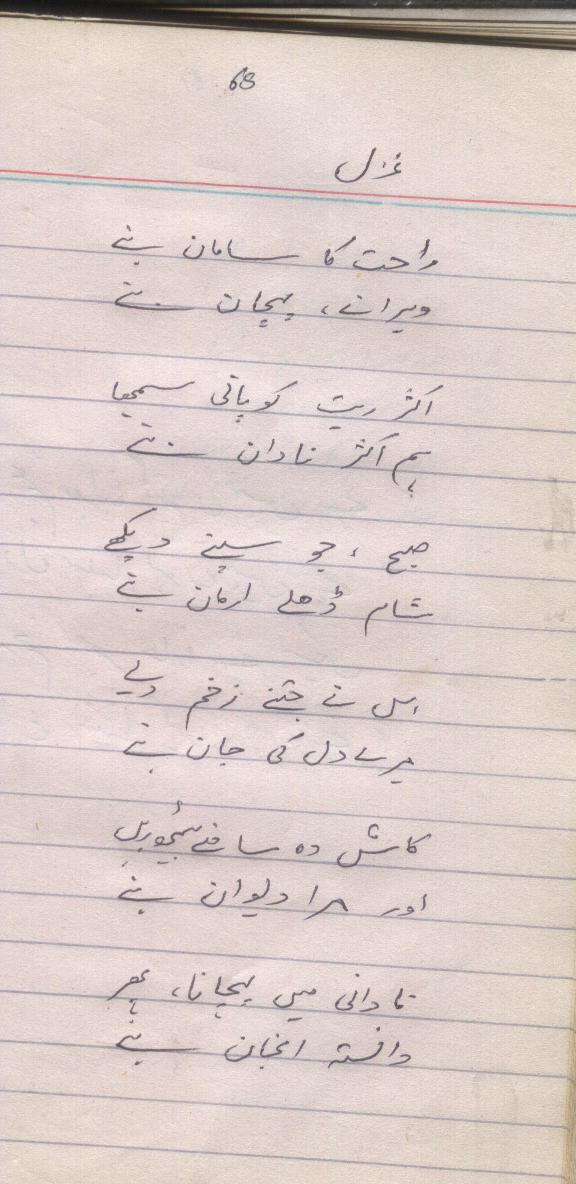 68
غزل
راحت کا سامان بنے
ویرانے، پہچان بنے
اکثر ریت کو پانی سمجھا
ہم اکثر نادان بنے
صبح، جو سپنے دیکھے
شام ڈھلے ارمان بنے
اس نے جتنے زخم دیے
میرے دل کی جان بنے
کاش وہ سامنے بیٹھی
اور مرا دیوان بنے
نادانی میں پہچانا، پھر
دانستہ انجان بنے